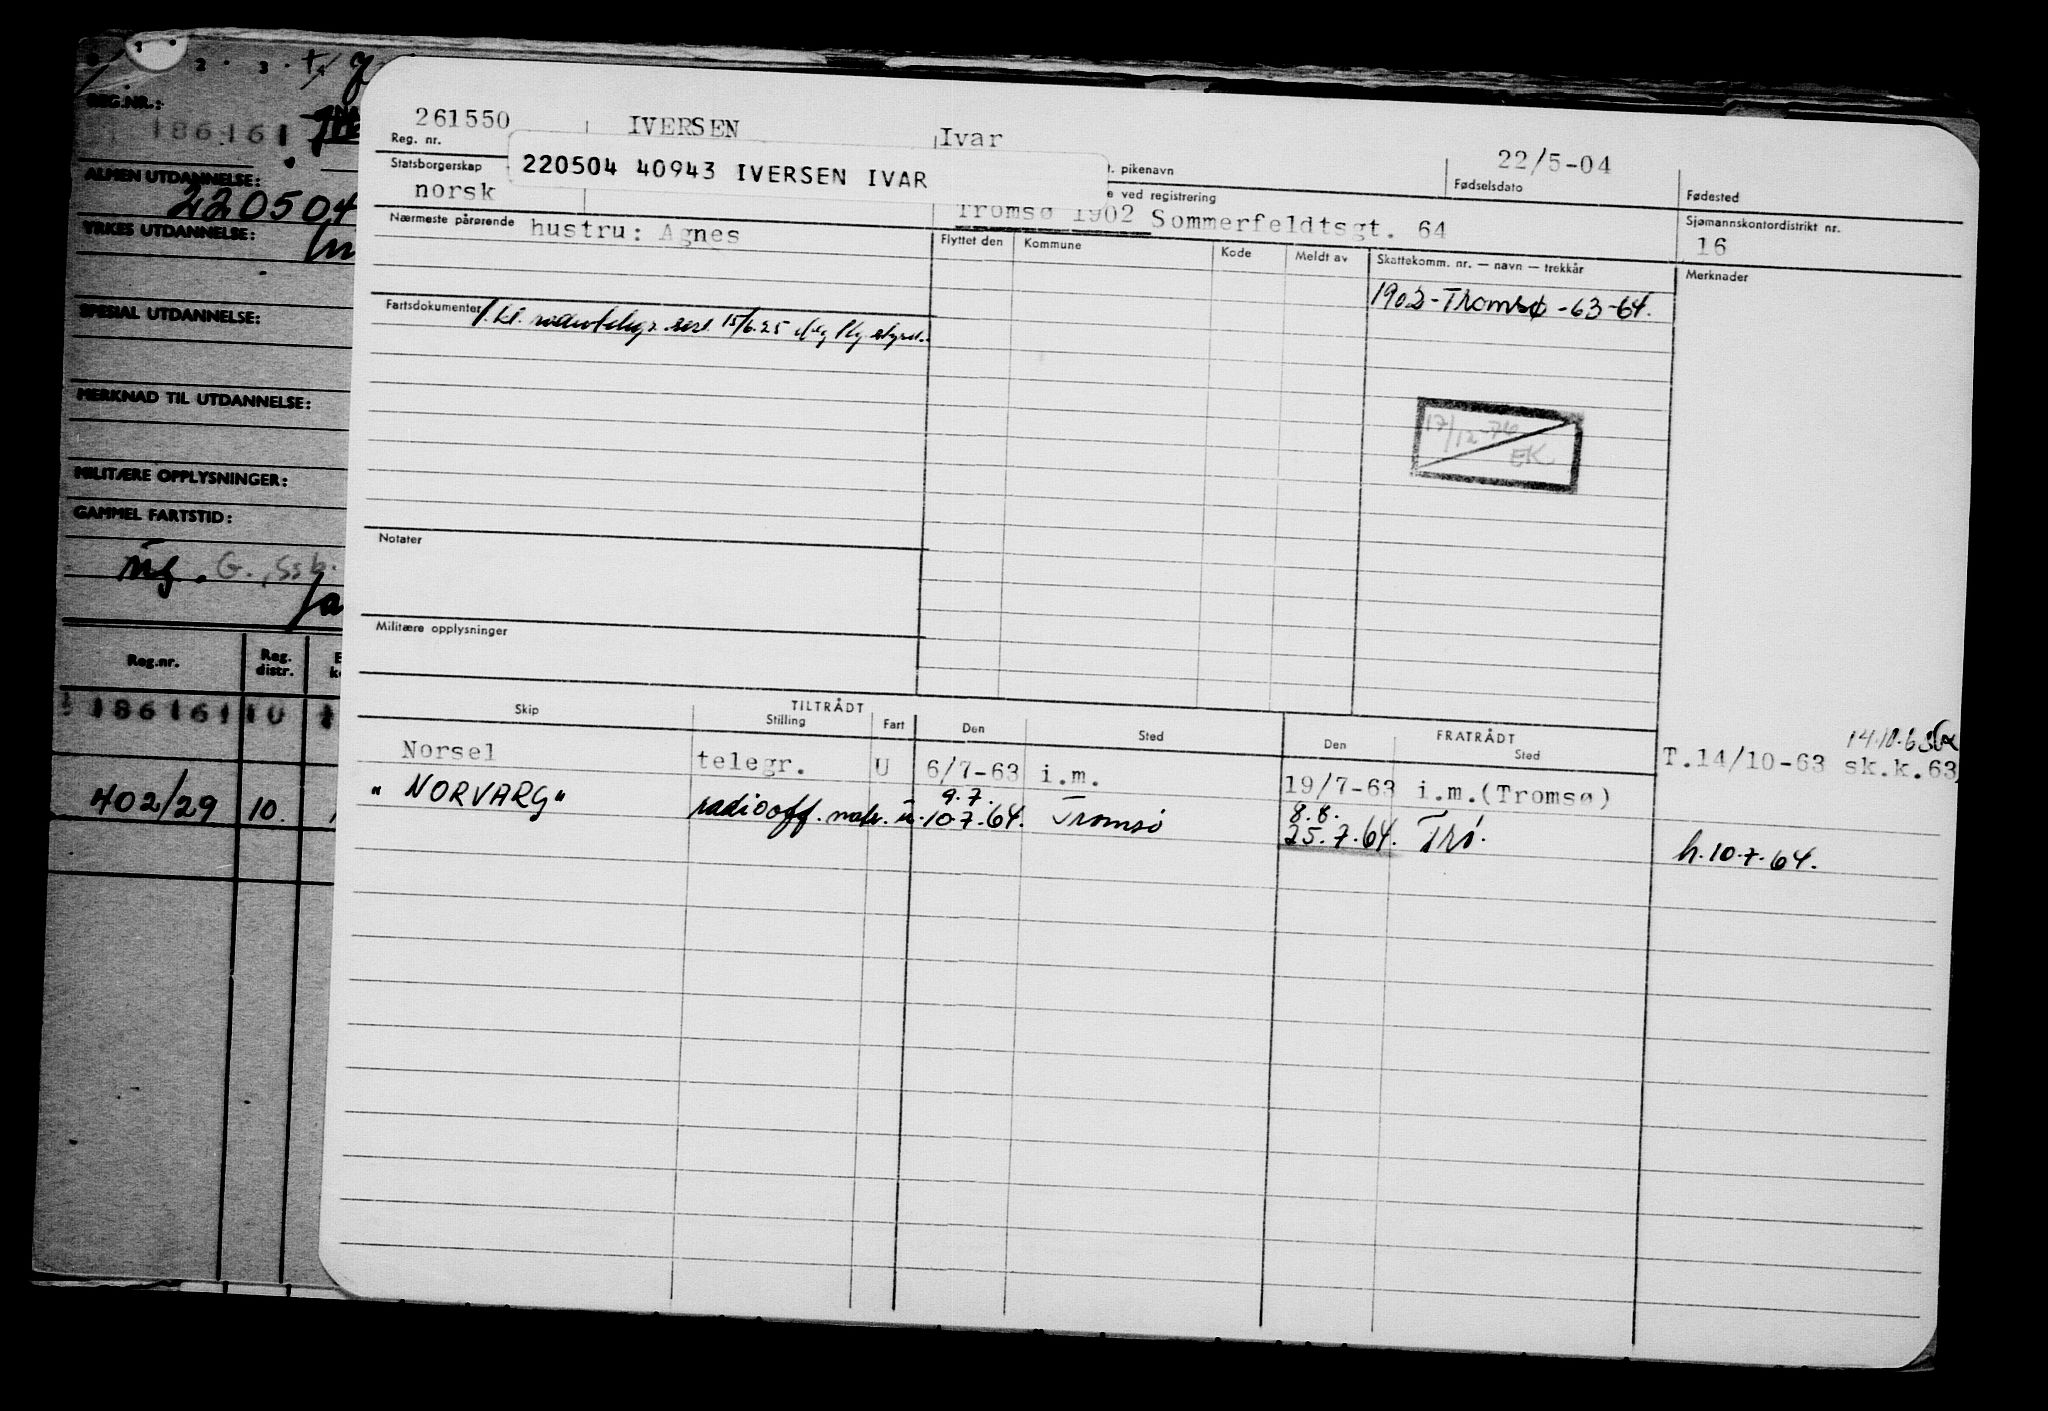 1 2 3 4
REG.NR.:
186161
ALMEN UTDANNELSE:
220504
YRKES UTDANNELSE:
SPESIAL UTDANNELSE:
MERKNAD TIL UTDANNELSE:
MILITÆRE OPPLYSNINGER:
GAMMEL FARTSTID:
G., Ssb.
Reg.nr. Reg. distr.
186161 10
402/29 10.
261550 IVERSEN Ivar 22/5-04
Reg. nr. pikenavn Fødselsdato Fødested
220504 40943 IVERSEN IVAR
Statsborgerskap ved registrering Sjømannskontordistrikt nr.
norsk Tromsø 1902 Sommerfeldtsgt. 64 16
Nærmeste pårørende hustru: Agnes
Flyttet den Kommune Kode Meldt av Skattekomm. nr. — navn — trekkår Merknader
1902-Tromsø-63-64.
Fartsdokumenter 1. kl. 15/6.25
17/12-74
EK.
Notater
Militære opplysninger
TILTRÅDT FRATRÅDT
Skip Stilling Fart Den Sted Den Sted
14.10.63
Norsel telegr. U 6/7-63 i.m. 19/7-63 i.m.(Tromsø) T.14/10-63 sk.k.63
9.7. 8.8.
"NORVARG" radiooff. u. 10.7.64. Tromsø 25.7.64. Trø. h.10.7.64.